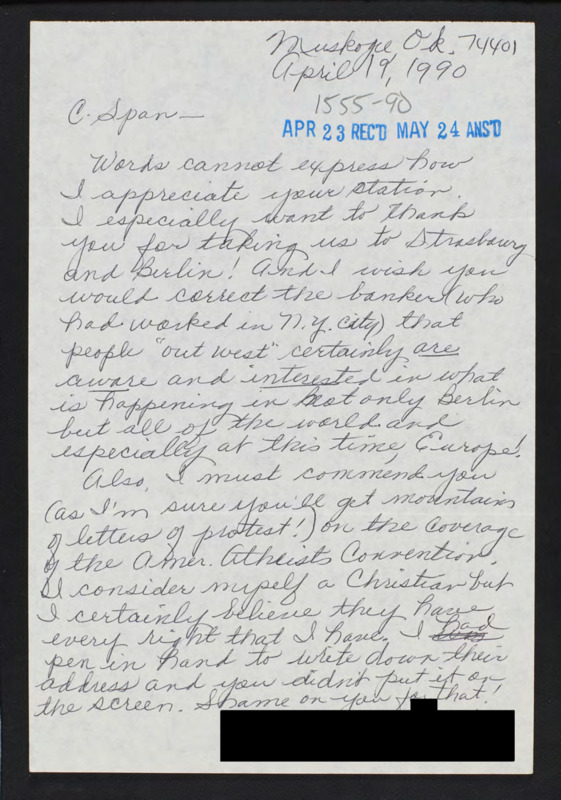 Muskogee Ok. 74401
April 19, 1990
1555-90
C. Span—
APR 23 REC'D MAY 24 ANS'D
Words cannot express how
I appreciate your station.
I especially want to thank
you for taking us to Strasbourg
and Berlin! And I wish you
would correct the banker (who
had worked in N.Y. City) that
people "out west" certainly are
aware and interested in what
is happening in not only Berlin
but all of the world and
especially at this time, Europe!
Also, I must commend you
(as I'm sure you'll get mountains
of letters of protest!) on the coverage
of the Amer. Atheists Convention.
I consider myself a Christian but
I certainly believe they have
every right that I have. I had
pen in hand to write down their
address and you didn't put it on
the screen. Shame on you for that!